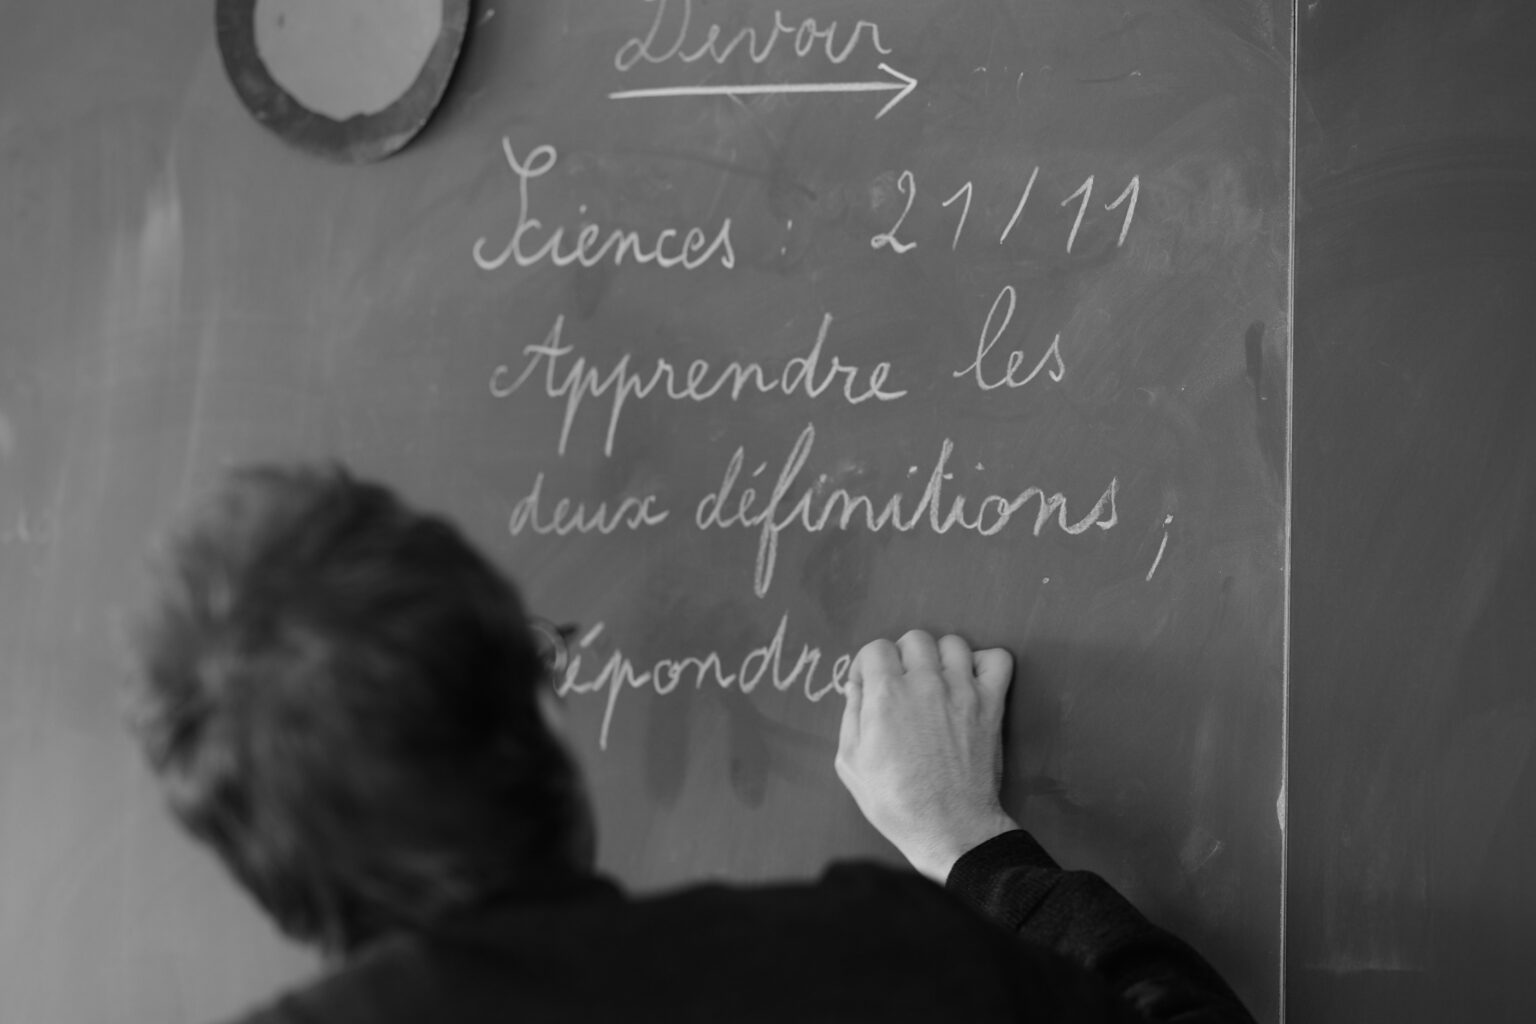 Devoir
Sciences : 21/11
Apprendre les
deux définitions,
Répondre